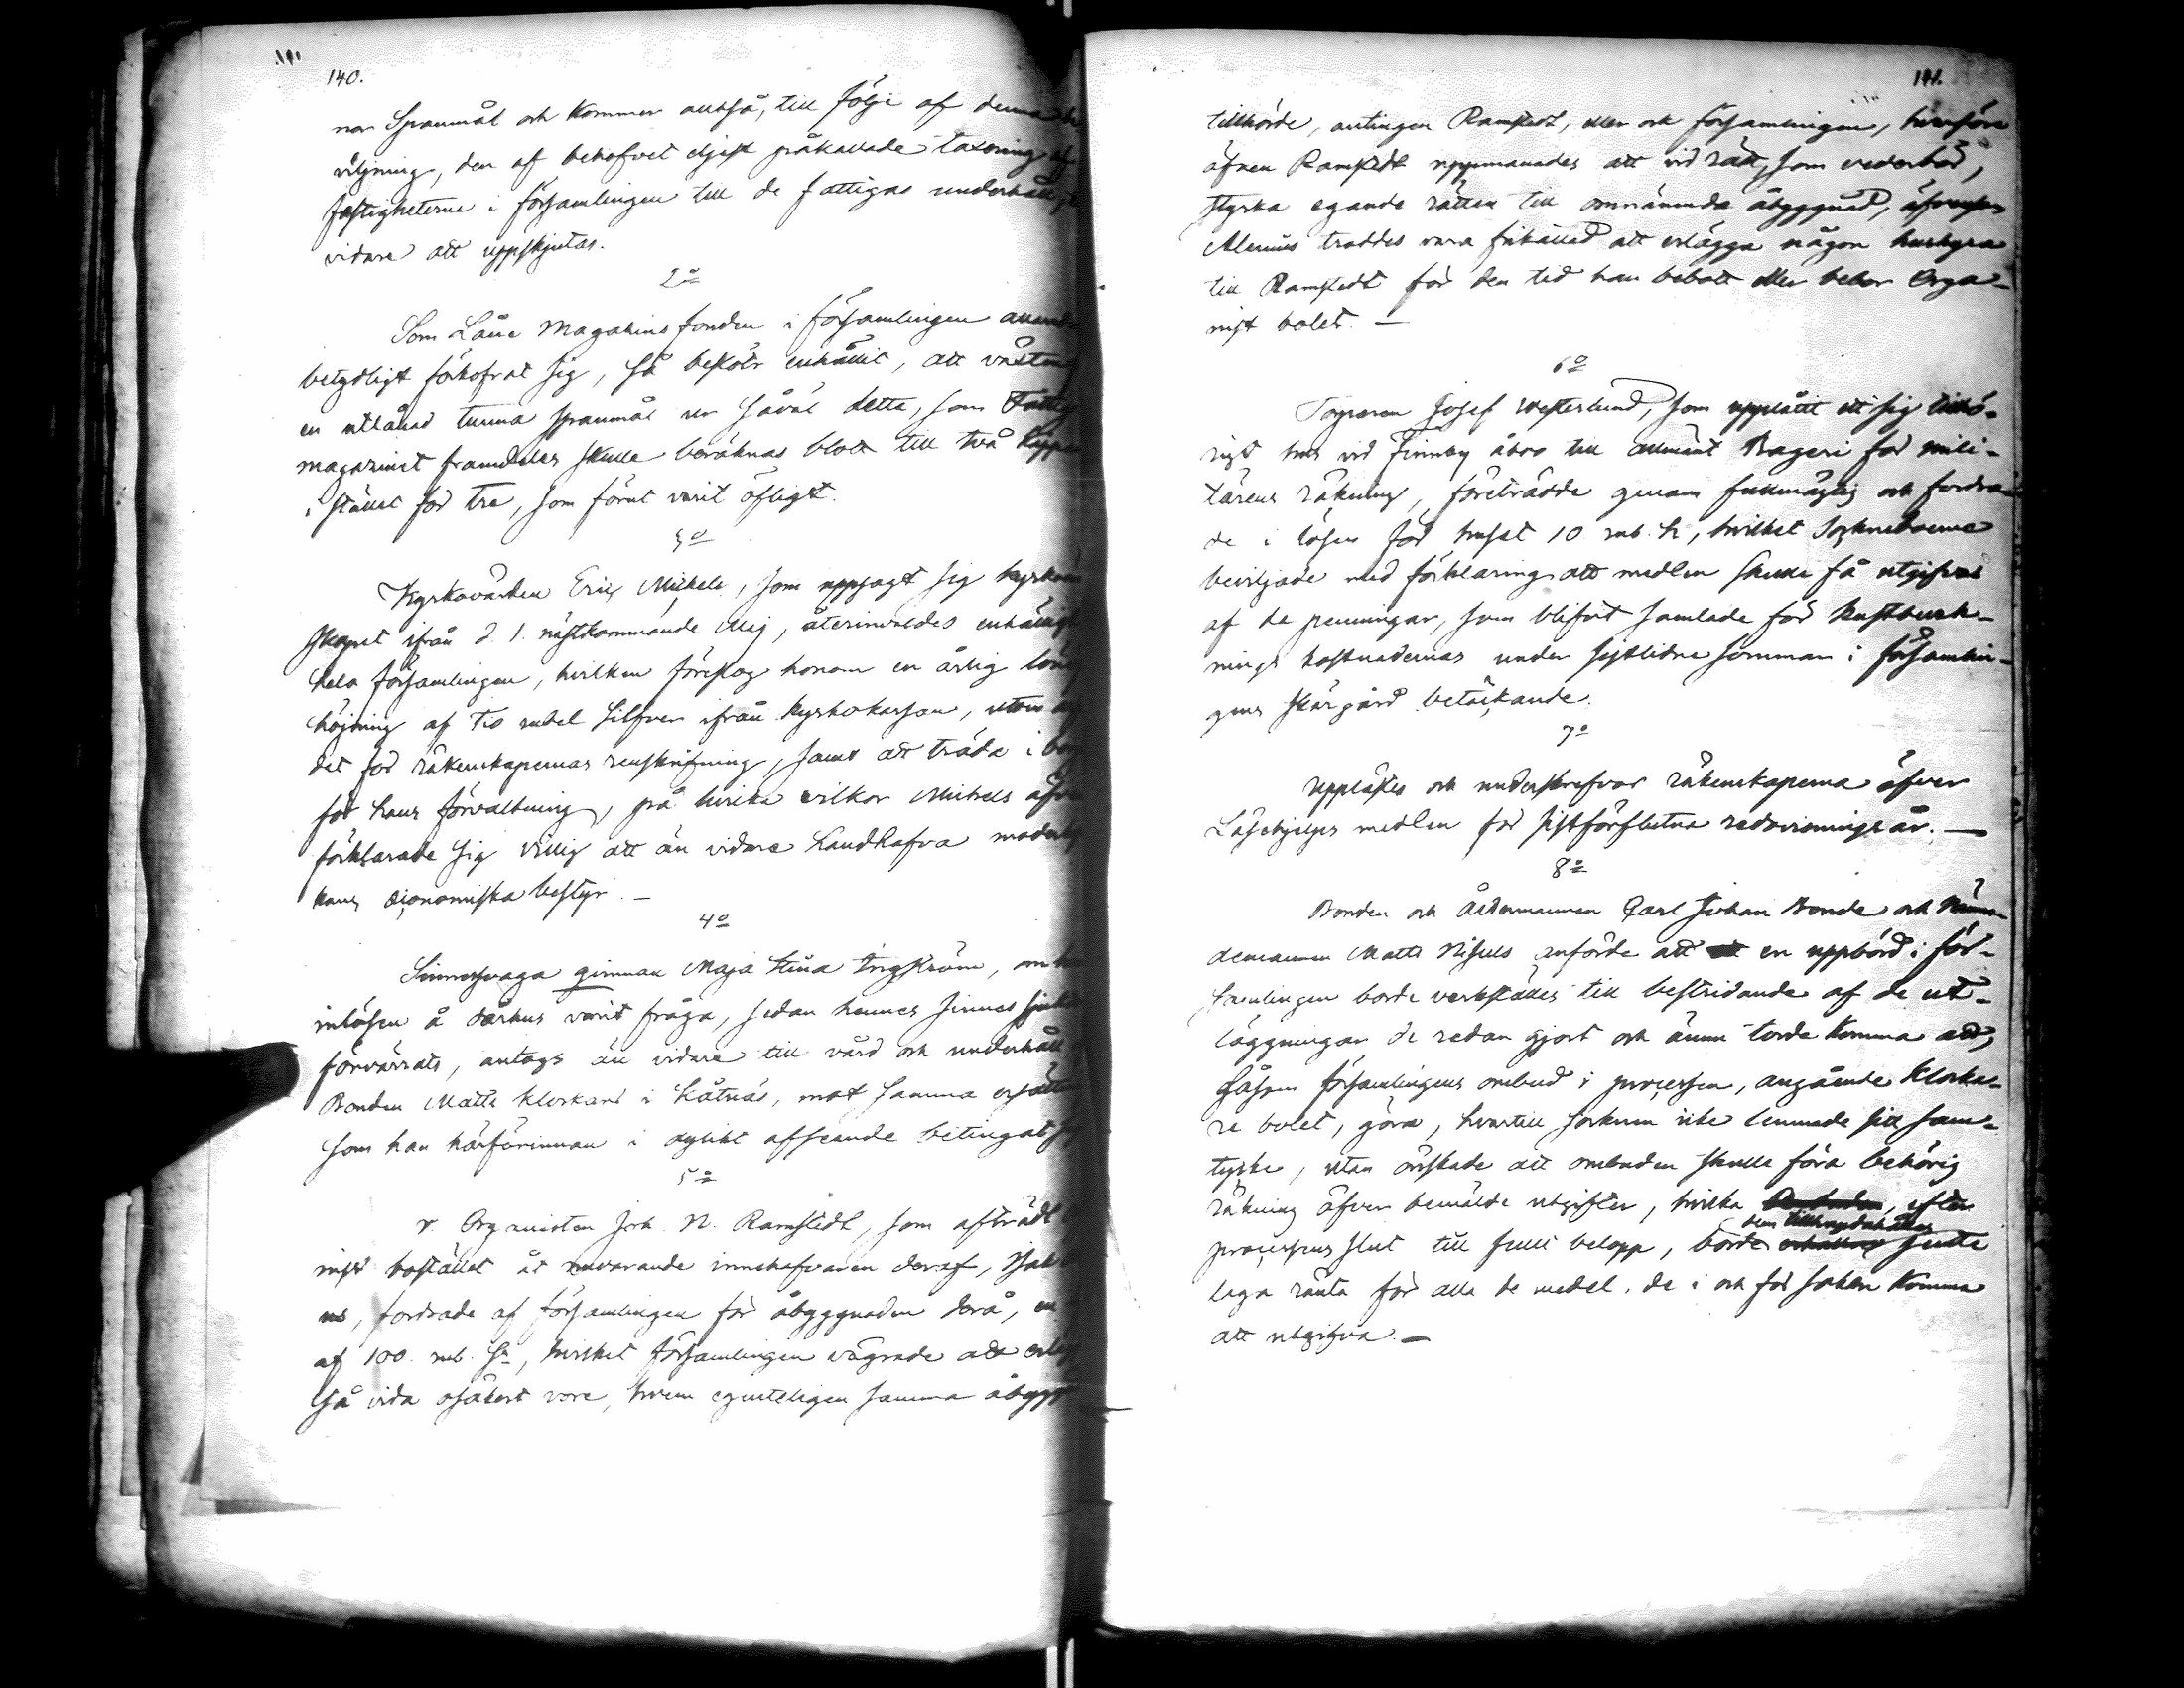 140.
nor Spanmål och kommer alltså, till följe af denna
viljning, den af behofvet eljest påkallade taxering af
fastigheterna i församlingen till de fattigas underhåll,
vidare att uppskjutas.
2o
Som Låne Magasins fonden i församlingen
betydligt förkofrat sig, så beslöts enhälligt, att
en utlånad tunna spanmål ur såväl detta, som
magazinet framdeles skulle beräknas blott till två kappar
i stället för tre, som förut varit öfligt.
3o
Kyrkovärden Eric Mickels, som uppsagt sig
skapet ifrån d. 1. nästkommande Maj, återinvaldes enhälligt
hela församlingen, hvilken föreslog honom en årlig
höjning af Tio rubel Silfver ifrån kyrkokassan, utom
det för räkenskapernas renskrifning, samt att träda i
för hans förvaltning, på hvilka vilkor Mickels
förklarade sig villig att än vidare handhafva
kans œconomiska bestyr. —
4o
Sinnessvaga qvinnan Maja Stina Engström, om
inlösen å dårhus varit fråga, sedan hennes sinnes
förvärrats, antogs än vidare till vård och underhåll
Bonden Matts Klockars i Kåtnäs, mot samma
som han härförinnan i dylikt afseende betingat
5o
v. Organisten Joh. N. Ramstedt, som afträdt
nist bostället åt nuvarande innehafvaren deraf,
us, fordrade af församlingen för åbyggnaden derå, en
af 100. rub. Sr, hvilket församlingen vägrade att
så vida osäkert vore, hvem egenteligen samma
141.
tillhörde, antingen Ramstedt, eller och församlingen, hvarföre
äfven Ramstedt uppmanades att vid rätt, som vederbör,
styrka egande rätten till omnämnda åbyggnad,
Alenius troddes vara frikallad att erlägga någon hushyra
till Ramstedt för den tid han bebott eller bebor Orga-
nist bolet. —
6o
Torparen Josef Westerlund, som upplåtit ett sig tillhö-
rigt hus vid Finnby åboo till allmänt Bageri för mili-
tärens räkning, företrädde genom fullmägtig och fordra-
de i lösen för huset 10 rub. Sr, hvilket Sockneboerne
beviljade med förklaring att medlen skulle få utgifvas
af de penningar, som blifvit samlade för Kustbevak-
nings kostnadernas under sistlidne sommar i församlin-
gens skärgård betäckande.
7o
Upplästes och underskrefvos räkenskaperna öfver
Läsehjelps medlen för sistförflutna redovisnings år. —
8o
Bonden och Åldermannen Carl Johan Bonde och Näm-
demannen Matts Nissuls anförde att en uppbörd i för-
samlingen borde verkställes till bestridande af de ut-
läggningar de redan gjort och ännu torde komma att,
såsom församlingens ombud i processen, angående klocka-
re bolet, göra, hvartill socknen icke lemnade sitt sam-
tycke, utan önskade att ombuden skulle föra behörig
räkning öfver bemälde utgifter, hvilka Ombuden, efter
dem tillhandahållas
processens slut till fullt belopp, borde erhållas jemte
laga ränta för alla de medel, de i och för saken komma
att utgifva. —